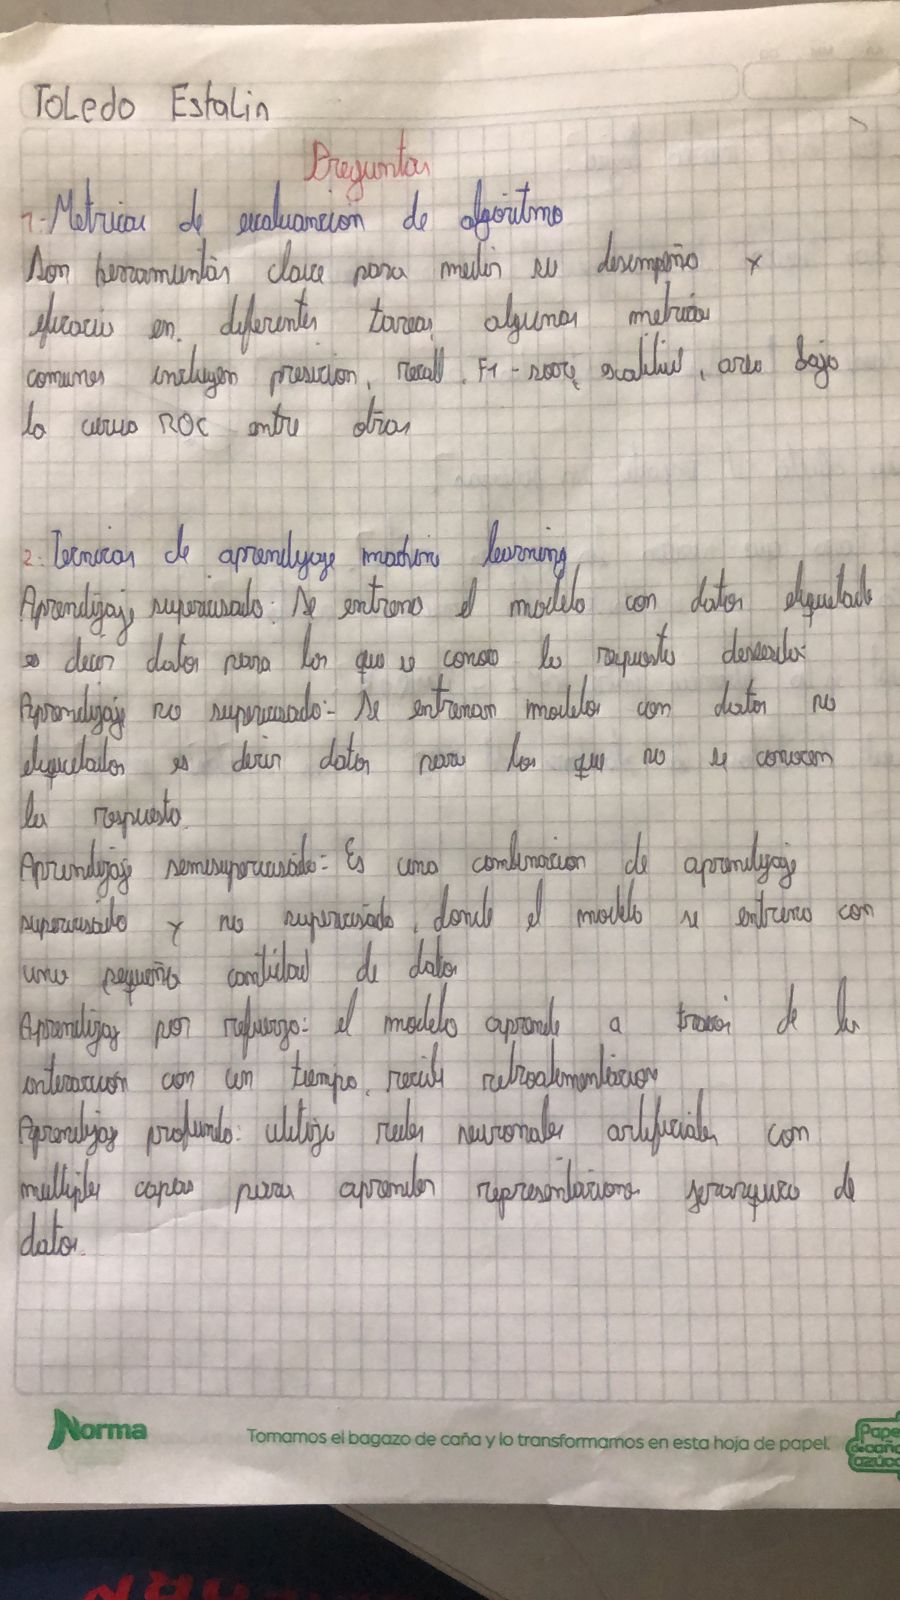 Toledo Estalin
Preguntas
1.- Metricas de evaluancion de algoritmo
Son herramientas clave para medir su desempeño y
eficacia en. diferentes tareas, algunas metricas
comunes incluyen presicion, recall, F1-score, , area bajo
la curva ROC entre otras
2.- Tecnicas de aprendizaje machine learning
Aprendizaje supervisado: Se entrena el modelo con datos etiquetado
es decir datos para los que se conoce la respuesta deseada:
Aprendizaje no supervisado:- Se entrenan modelos con datos no
etiquetados es decir datos para los que no se conocen
la respuesta.
Aprendizaje semisupervisado:- Es una combinacion de aprendizaje
supervisado y no supervisado, donde el modelo se entrena con
una pequeña cantidad de datos
Aprendizaje por refuerzo:- el modelo aprende a traves de la
interaccion con un tiempo, recibe retroalimentacion
Aprendizaje profundo: utiliza redes neuronales artificiales con
multiples capas para aprender representacione jerarquica de
datos.
Norma
Tomamos el bagazo de caña y lo transformamos en esta hoja de papel.
Pape
de caña
azúca